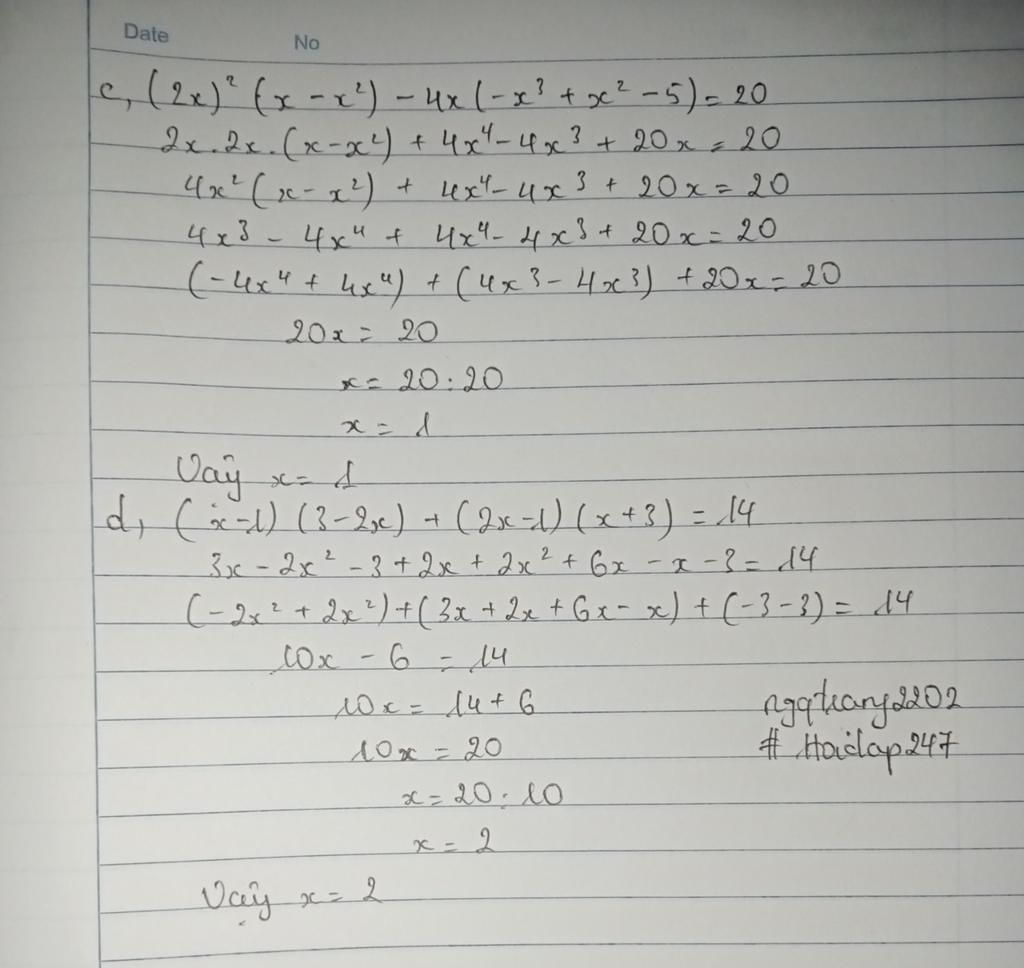 Date No
c, (2x)² (x - x²) - 4x(-x³ + x² - 5) = 20
2x.2x.(x-x²) + 4x⁴ - 4x³ + 20x = 20
4x²(x - x²) + 4x⁴ - 4x³ + 20x = 20
4x³ - 4x⁴ + 4x⁴ - 4x³ + 20x = 20
(-4x⁴ + 4x⁴) + (4x³ - 4x³) + 20x = 20
20x = 20
x = 20 : 20
x = 1
Vậy x = 1
d, (x-1) (3-2x) + (2x-1) (x+3) = 14
3x - 2x² - 3 + 2x + 2x² + 6x - x - 3 = 14
(-2x² + 2x²) + (3x + 2x + 6x - x) + (-3-3) = 14
10x - 6 = 14
10x = 14 + 6
ngqtrang2202
10x = 20
# Hoidap247
x = 20 : 10
x = 2
Vậy x = 2